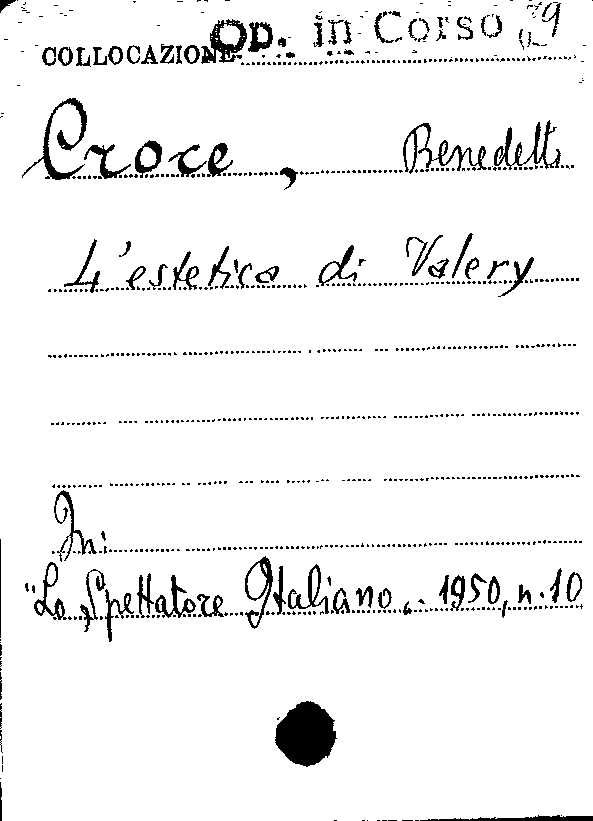 COLLOCAZIONE Op. in Corso 9
Croce, Benedetto
L'estetica di Valery
In:
"Lo Spettatore Italiano". 1950, n. 10